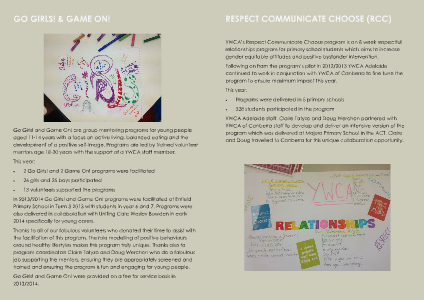 GO GIRLS! & GAME ON!
GIRLS
Go Girls! and Game On! are group mentoring programs for young people
aged 11-14 years with a focus on active living, balanced eating and the
development of a positive self-image. Programs are led by trained volunteer
mentors age 18-30 years with the support of a YWCA staff member.
This year:
• 2 Go Girls! and 2 Game On! programs were facilitated
• 24 girls and 25 boys participated
• 13 volunteers supported the programs
In 2013/2014 Go Girls! and Game On! programs were facilitated at Enfield
Primary School in Term 3 2013 with students in year 6 and 7. Programs were
also delivered in collaboration with Uniting Care Wesley Bowden in early
2014 specifically for young carers.
Thanks to all of our fabulous volunteers who donated their time to assist with
the facilitation of this program. The role modelling of positive behaviours
around healthy lifestyles makes this program truly unique. Thanks also to
program coordinators Claire Tatyas and Doug Werchon who do a fabulous
job supporting the mentors, ensuring they are appropriately screened and
trained and ensuring the program is fun and engaging for young people.
Go Girls! and Game On! were provided on a fee for service basis in
2013/2014.
RESPECT COMMUNICATE CHOOSE (RCC)
YWCA's Respect Communicate Choose program is an 8 week respectful
relationships program for primary school students which aims to increase
gender equitable attitudes and positive bystander intervention.
Following on from the program's pilot in 2012/2013 YWCA Adelaide
continued to work in conjunction with YWCA of Canberra to fine tune the
program to ensure maximum impact this year.
This year:
• Programs were delivered in 5 primary schools
• 328 students participated in the program
YWCA Adelaide staff, Claire Tatyas and Doug Werchon partnered with
YWCA of Canberra staff to develop and deliver an intensive version of the
program which was delivered at Majura Primary School in the ACT. Claire
and Doug travelled to Canberra for this unique collaboration opportunity.
YWCA
RELATIONSHIPS